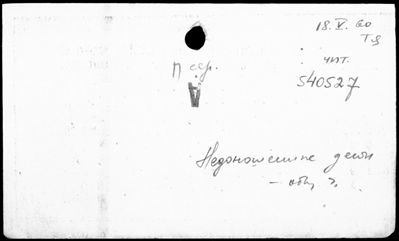 18. V. 60
П сер.
чит.
540527
Недоношенные дети